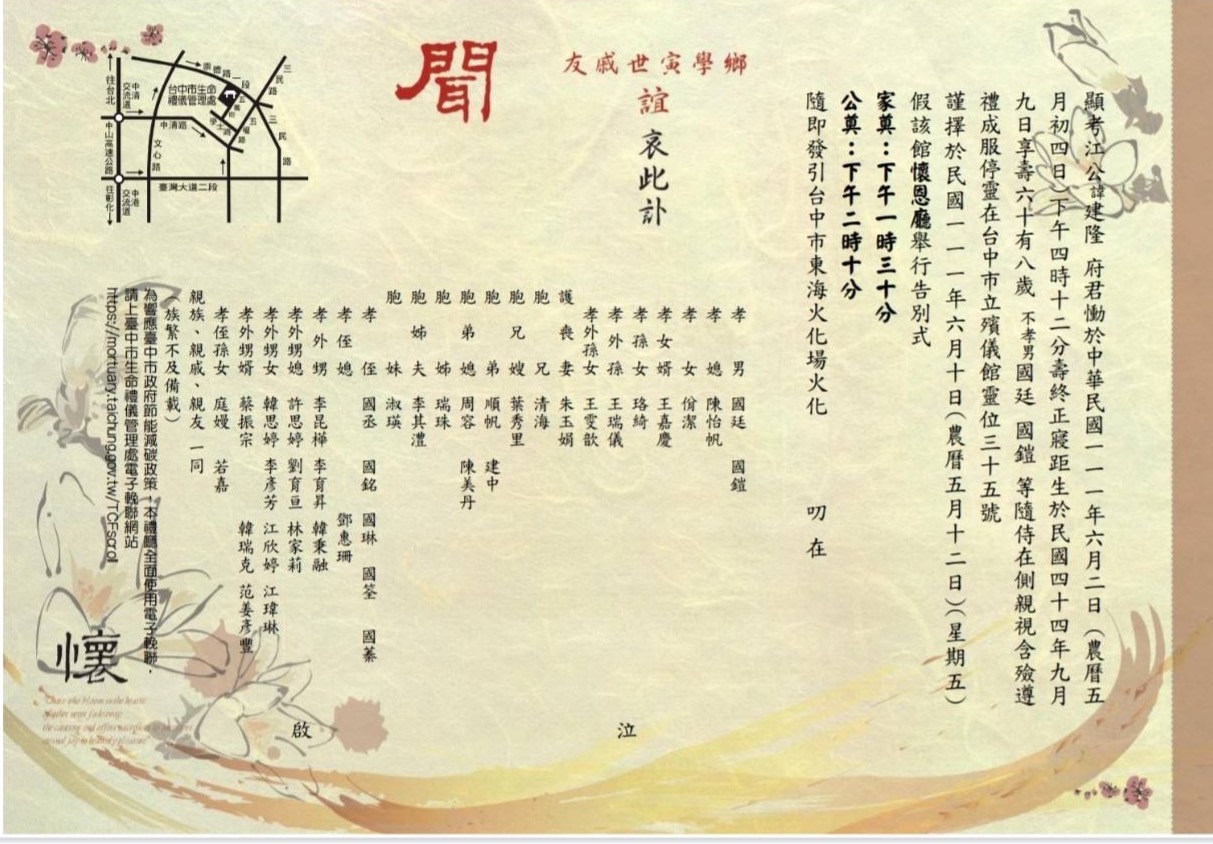 顯考江公諱建隆 府君慟於中華民國一一一年六月二日（農曆五
月初四日）下午四時十二分壽終正寢距生於民國四十四年九月
九日享壽六十有八歲 不孝男國廷 國鎧 等隨侍在側親視含殮遵
禮成服停靈在台中市立殯儀館靈位三十五號
謹擇於民國一一一年六月十日（農曆五月十二日）（星期五）
假該館懷恩廳舉行告別式
家奠：下午一時三十分
公奠：下午二時十分
隨即發引台中市東海火化場火化
叨在
鄉學寅世戚友
誼
哀此訃
聞
孝男 國廷 國鎧
孝媳 陳怡帆
孝女 俏潔
孝女婿 王嘉慶
孝孫女 珞綺
孝外孫 王瑞儀
孝外孫女 王雯歆
護喪妻 朱玉娟
胞兄 清海
胞兄嫂 葉秀里
胞弟 順帆 建中
胞弟媳 周容 陳美丹
胞姊 瑞珠
胞姊夫 李其澧
胞妹 淑瑛
孝侄 國丞 國銘 國琳 國荃 國蓁
孝侄媳 鄧惠珊
孝外甥 李昆樺 李育昇 韓秉融
孝外甥媳 許思婷 劉育亘 林家莉
孝外甥女 韓思婷 李彥芳 江欣婷 江瑋琳
孝外甥婿 蔡振宗 韓瑞克 范姜彥豐
孝侄孫女 庭嫚 若嘉
親族、親戚、親友 一同
（族繁不及備載）
泣
啟
為響應臺中市政府節能減碳政策，本禮廳全面使用電子輓聯，
請上臺中市生命禮儀管理處電子輓聯網站
https://mortuary.taichung.gov.tw/TCFscrol
懷
往台北
中清交流道
中山高速公路
中港交流道
往彰化
中清路
文心路
臺灣大道二段
崇德路一段
台中市生命禮儀管理處
五義街
學士路
五權路
三民路
三民路